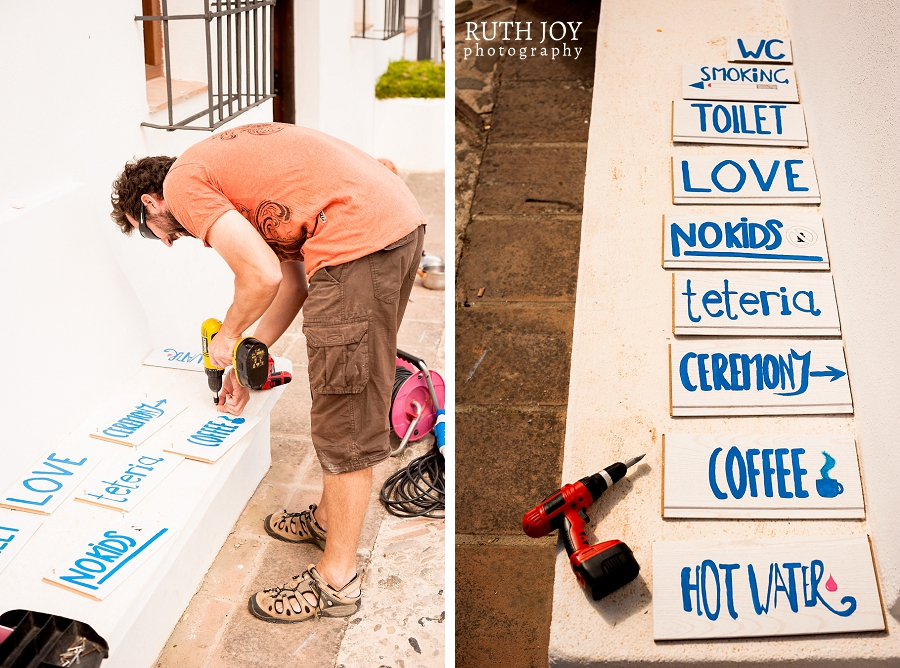 WATE
CEREMONY
COFFEE
LOVE
teteria
NO KIDS
RUTH JOY
photography
WC
SMOKING
TOILET
LOVE
NO KIDS
teteria
CEREMONY
COFFEE
HOT WATER